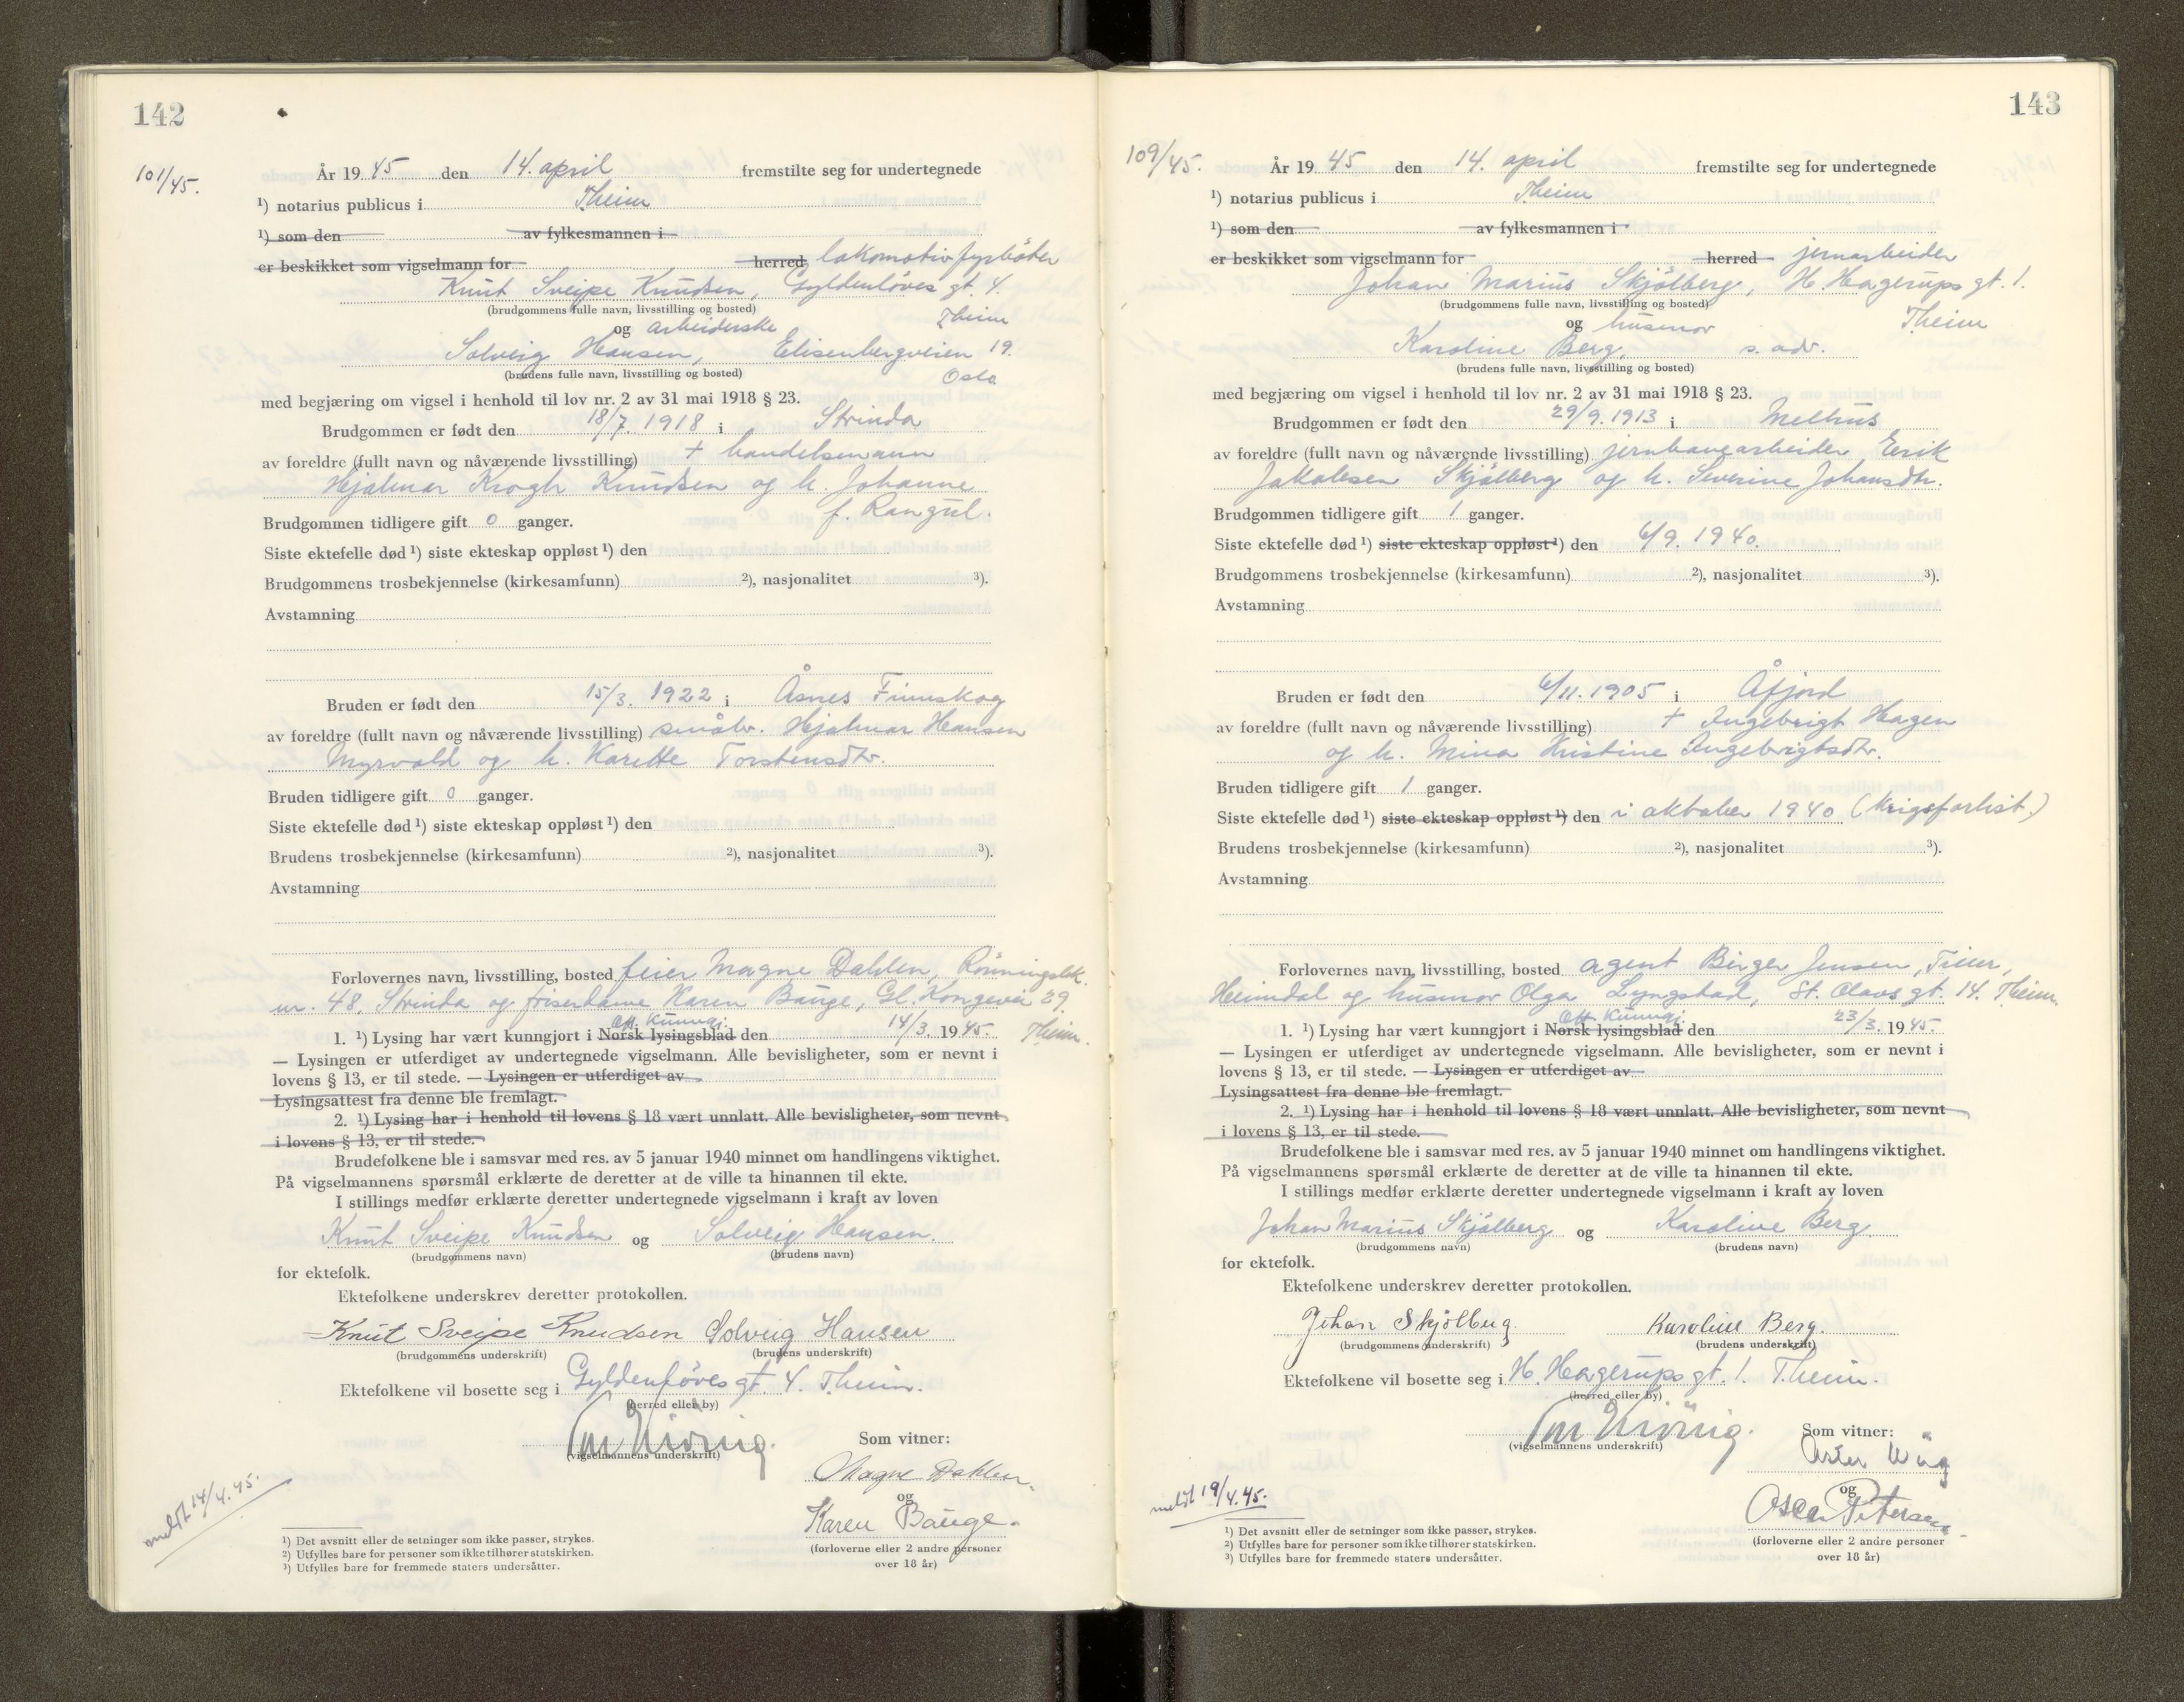 142
101/45.
År 19 45 den 14. april fremstilte seg for undertegnede
¹) notarius publicus i Theim
¹) som den av fylkesmannen i
er beskikket som vigselmann for herred lokomotivfyrbøter
Knut Sveipe Knudsen, Gyldenløves gt. 4.
(brudgommens fulle navn, livsstilling og bosted) Theim
og arbeiderske
Solveig Hansen, Elisenbergveien 19.
(brudens fulle navn, livsstilling og bosted) Oslo
med begjæring om vigsel i henhold til lov nr. 2 av 31 mai 1918 § 23.
Brudgommen er født den 18/7. 1918 i Strinda
av foreldre (fullt navn og nåværende livsstilling) + handelsmann
Hjalmar Krogh Knudsen og h. Johanne
f. Rangul.
Brudgommen tidligere gift 0 ganger.
Siste ektefelle død ¹) siste ekteskap oppløst ¹) den
Brudgommens trosbekjennelse (kirkesamfunn) ²), nasjonalitet ³).
Avstamning
Bruden er født den 15/3. 1922 i Åsnes Finnskog
av foreldre (fullt navn og nåværende livsstilling) småbr. Hjalmar Hansen
Myrvold og h. Karette Torstensdtr.
Bruden tidligere gift 0 ganger.
Siste ektefelle død ¹) siste ekteskap oppløst ¹) den
Brudens trosbekjennelse (kirkesamfunn) ²), nasjonalitet ³).
Avstamning
Forlovernes navn, livsstilling, bosted feier Magne Dahlen, Rönningsbk.
nr. 48, Strinda og friserdame Karen Bauge, Gl. Kongevei 29.
Off. Kunngj.
1. ¹) Lysing har vært kunngjort i Norsk lysingsblad den 14/3. 19 45. Theim.
— Lysingen er utferdiget av undertegnede vigselmann. Alle bevisligheter, som er nevnt i
lovens § 13, er til stede. — Lysingen er utferdiget av
Lysingsattest fra denne ble fremlagt.
2. ¹) Lysing har i henhold til lovens § 18 vært unnlatt. Alle bevisligheter, som nevnt
i lovens § 13, er til stede.
Brudefolkene ble i samsvar med res. av 5 januar 1940 minnet om handlingens viktighet.
På vigselmannens spørsmål erklærte de deretter at de ville ta hinannen til ekte.
I stillings medfør erklærte deretter undertegnede vigselmann i kraft av loven
Knut Sveipe Knudsen og Solveig Hansen.
(brudgommens navn) (brudens navn)
for ektefolk.
Ektefolkene underskrev deretter protokollen.
Knut Sveipe Knudsen Solveig Hansen
(brudgommens underskrift) (brudens underskrift)
Ektefolkene vil bosette seg i Gyldenløves gt. 4. Theim.
(herred eller by)
(vigselmannens underskrift)
Som vitner:
Magne Dahlen.
og
Karen Bauge.
(forloverne eller 2 andre personer
over 18 år)
meldt 14/4.45.
¹) Det avsnitt eller de setninger som ikke passer, strykes.
²) Utfylles bare for personer som ikke tilhører statskirken.
³) Utfylles bare for fremmede staters undersåtter.
143
109/45.
År 19 45 den 14. april fremstilte seg for undertegnede
¹) notarius publicus i Theim
¹) som den av fylkesmannen i
er beskikket som vigselmann for herred jernarbeider
Johan Marius Skjølberg, H. Hagerups gt. 1.
(brudgommens fulle navn, livsstilling og bosted) Theim
og husmor
Karoline Berg, s. adr.
(brudens fulle navn, livsstilling og bosted)
med begjæring om vigsel i henhold til lov nr. 2 av 31 mai 1918 § 23.
Brudgommen er født den 29/9. 1913 i Melhus
av foreldre (fullt navn og nåværende livsstilling) jernbanearbeider Erik
Jakobsen Skjølberg og h. Severine Johansdtr.
Brudgommen tidligere gift 1 ganger.
Siste ektefelle død ¹) siste ekteskap oppløst ¹) den 6/9. 1940.
Brudgommens trosbekjennelse (kirkesamfunn) ²), nasjonalitet ³).
Avstamning
Bruden er født den 6/11. 1905 i Åfjord
av foreldre (fullt navn og nåværende livsstilling) + Ingebrigt Hagen
og h. Mina Kristine Ingebrigtsdtr.
Bruden tidligere gift 1 ganger.
Siste ektefelle død ¹) siste ekteskap oppløst ¹) den i oktober 1940 (krigsforlist.)
Brudens trosbekjennelse (kirkesamfunn) ²), nasjonalitet ³).
Avstamning
Forlovernes navn, livsstilling, bosted agent Birger Jensen, Tiller,
Heimdal og husmor Olga Lyngstad, St. Olavs gt. 14. Theim.
Off. Kunngj.
1. ¹) Lysing har vært kunngjort i Norsk lysingsblad den 23/3. 19 45.
— Lysingen er utferdiget av undertegnede vigselmann. Alle bevisligheter, som er nevnt i
lovens § 13, er til stede. — Lysingen er utferdiget av
Lysingsattest fra denne ble fremlagt.
2. ¹) Lysing har i henhold til lovens § 18 vært unnlatt. Alle bevisligheter, som nevnt
i lovens § 13, er til stede.
Brudefolkene ble i samsvar med res. av 5 januar 1940 minnet om handlingens viktighet.
På vigselmannens spørsmål erklærte de deretter at de ville ta hinannen til ekte.
I stillings medfør erklærte deretter undertegnede vigselmann i kraft av loven
Johan Marius Skjølberg og Karoline Berg.
(brudgommens navn) (brudens navn)
for ektefolk.
Ektefolkene underskrev deretter protokollen.
Johan Skjölberg. Karoline Berg.
(brudgommens underskrift) (brudens underskrift)
Ektefolkene vil bosette seg i H. Hagerups gt. 1. Theim.
(herred eller by)
(vigselmannens underskrift)
Som vitner:
og
Oscar Petersen.
(forloverne eller 2 andre personer
over 18 år)
meldt 19/4.45.
¹) Det avsnitt eller de setninger som ikke passer, strykes.
²) Utfylles bare for personer som ikke tilhører statskirken.
³) Utfylles bare for fremmede staters undersåtter.